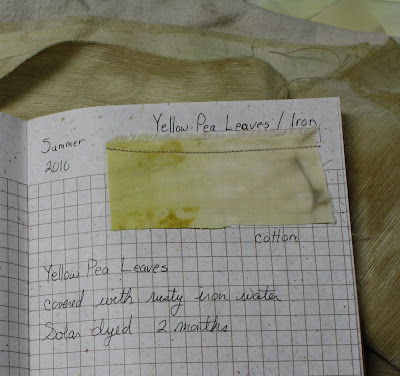 Yellow Pea Leaves / Iron
Summer
2010
cotton
Yellow Pea Leaves
covered with rusty iron water
Solar dyed 2 months